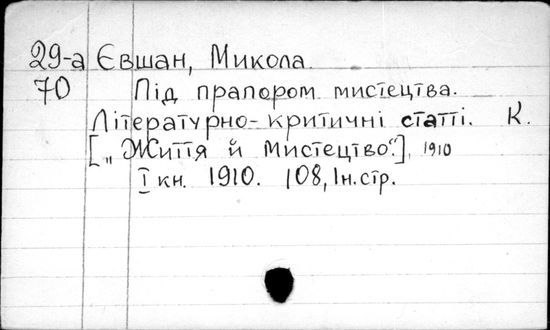 29-а Євшан, Микола.
70 Під прапором мистецтва.
Літературно-критичні статті. К.
[„Життя й мистецтво".], 1910
I кн. 1910. 108, Iн.стр.